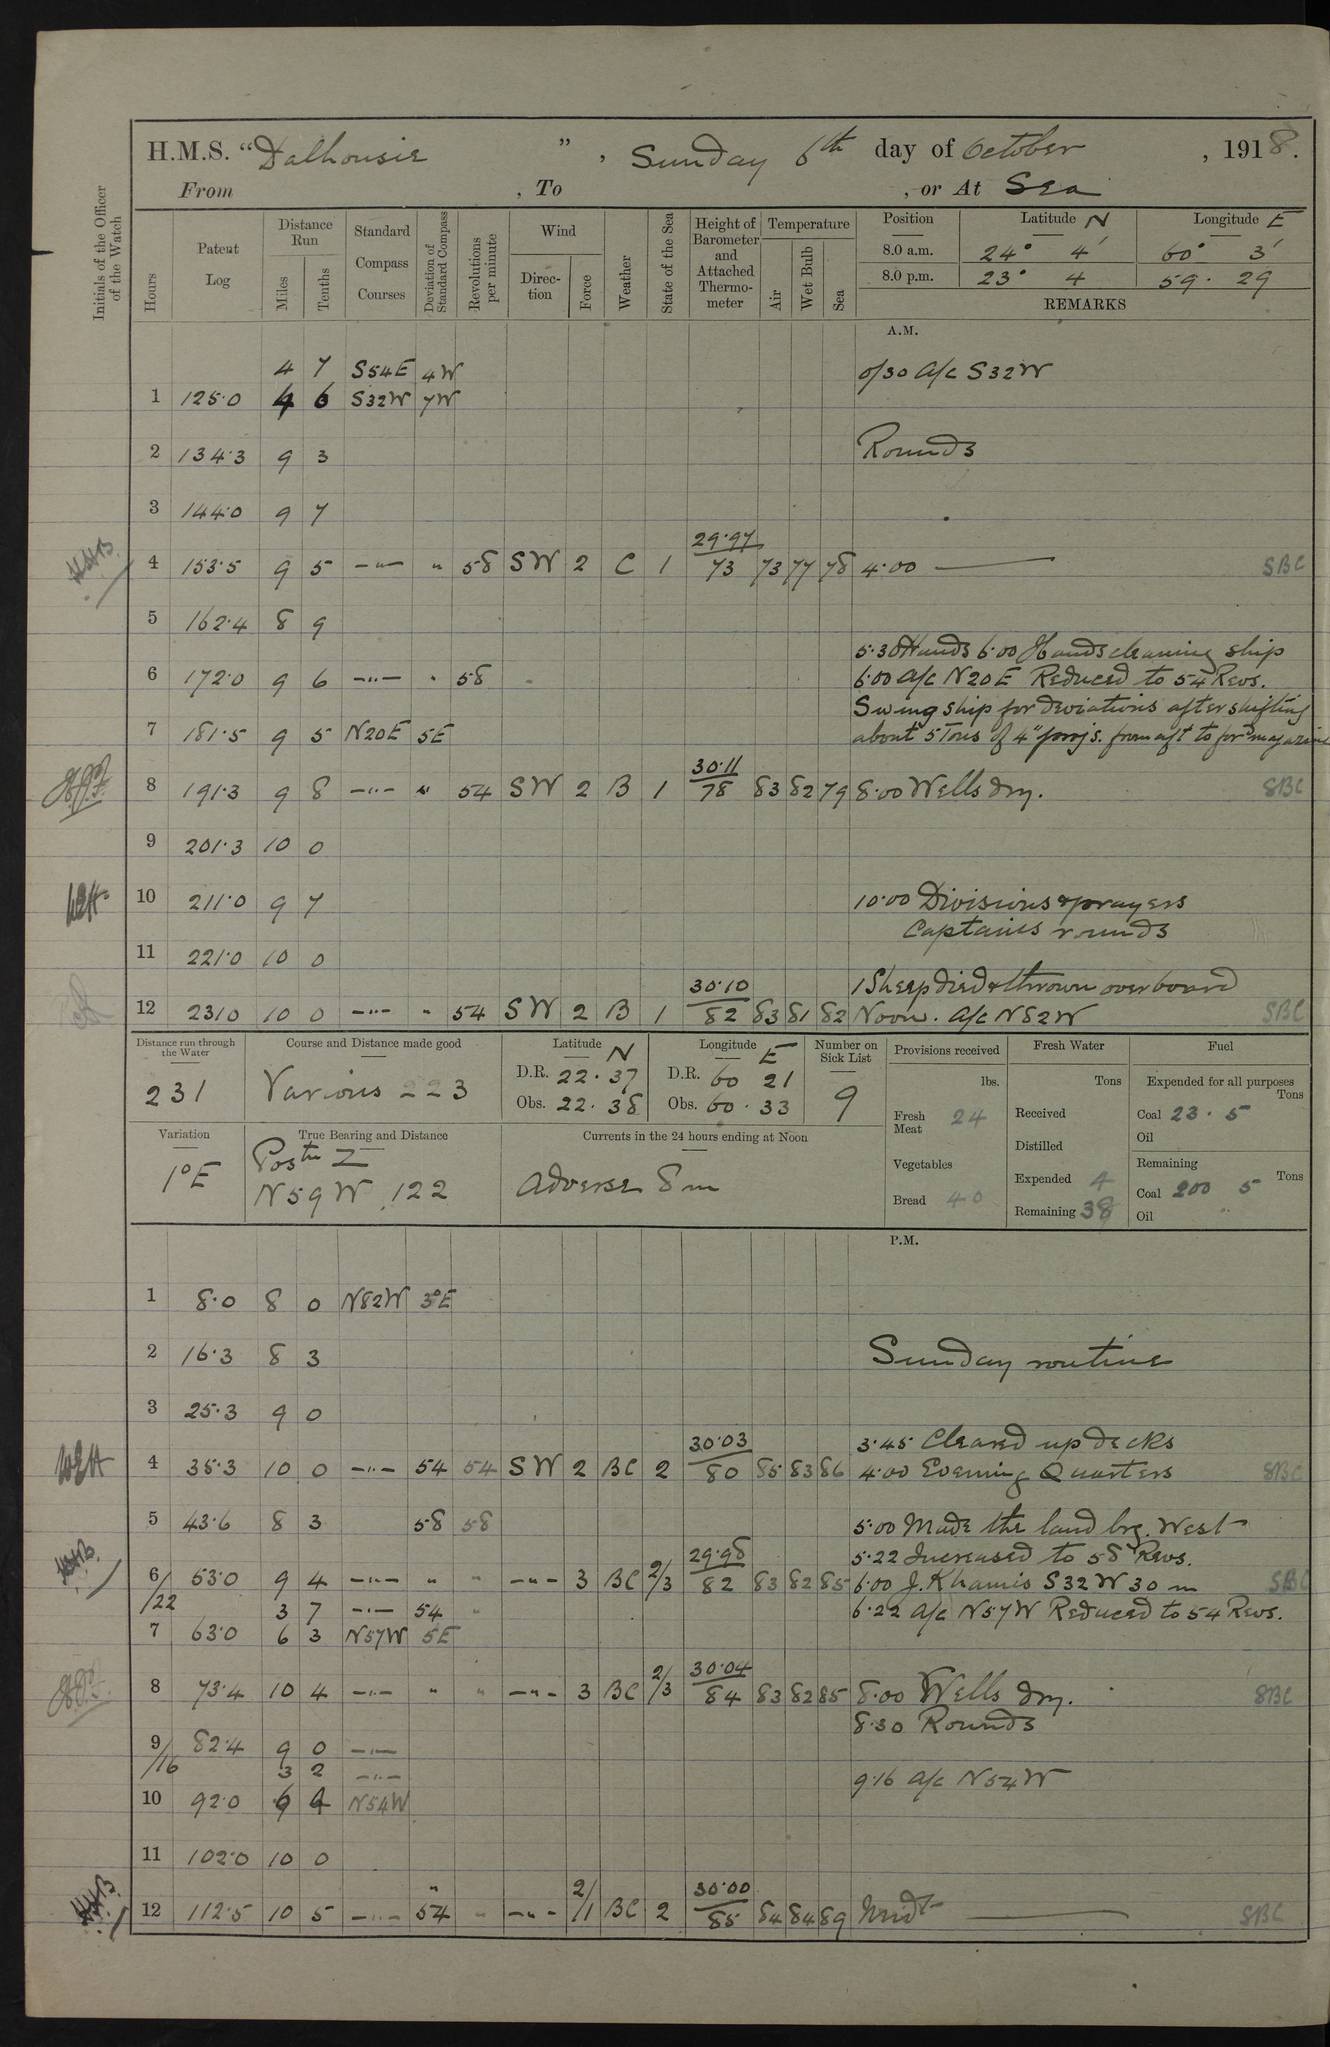 H.M.S. "Dalhousie", Sunday 6th day of October, 1918.
From , To , or At Sea
Initials of the Officer of the Watch
Hours Patent Log Distance Run Miles Tenths Standard Compass Courses Deviation of Standard Compass Revolutions per minute Wind Direction Force Weather State of the Sea Height of Barometer and Attached Thermometer Temperature Air Wet Bulb Sea
Position Latitude N Longitude E
8.0 a.m. 24° 4' 60° 3'
8.0 p.m. 23° 4 59. 29
REMARKS
A.M.
4 7 S54E 4W 0/30 A/c S32W
1 125.0 4 6 S32W 7W
2 134.3 9 3 Rounds
3 144.0 9 7
29.97
4 153.5 9 5 —"— " 58 SW 2 C 1 73 73 77 78 4.00 —— SBC
5 162.4 8 9
5.30 Hands 6.00 Hands cleaning ship
6 172.0 9 6 —"— " 58 6.00 A/c N20E Reduced to 54 Revs.
Swing ship for deviations after shifting
7 181.5 9 5 N20E 5E about 5 Tons of 4" projs. from aft to ford magazine
30.11
8 191.3 9 8 —"— " 54 SW 2 B 1 78 83 82 79 8.00 Wells dry. SBC
9 201.3 10 0
10 211.0 9 7 10.00 Divisions & prayers
Captains rounds
11 221.0 10 0
30.10 1 Sheep died & thrown overboard
12 231.0 10 0 —"— " 54 SW 2 B 1 82 83 81 82 Noon. A/c N82W SBC
Distance run through the Water Course and Distance made good Latitude N Longitude E Number on Sick List Provisions received Fresh Water Fuel
231 Various 223 D.R. 22.37 D.R. 60 21 9 lbs. Tons Expended for all purposes Tons
Obs. 22.38 Obs. 60.33 Fresh Meat 24 Received Coal 23.5
Oil
Variation True Bearing and Distance Currents in the 24 hours ending at Noon Distilled
1°E Postn Z Adverse 8m Vegetables Expended 4 Remaining Tons
N59W 122 Bread 40 Remaining 38 Coal 200 5
Oil "
P.M.
1 8.0 8 0 N82W 3°E
2 16.3 8 3 Sunday routine
3 25.3 9 0
30.03 3.45 Cleared up decks
4 35.3 10 0 —"— 54 54 SW 2 BC 2 80 85 83 86 4.00 Evening Quarters SBC
5 43.6 8 3 58 58 5.00 Made the land brg. West
29.98 5.22 Increased to 58 Revs.
6 53.0 9 4 —"— " " —"— 3 BC 2/3 82 83 82 85 6.00 J. Khamis S32W 30 m SBC
/22 3 7 —"— 54 " 6.22 A/c N57W Reduced to 54 Revs.
7 63.0 6 3 N57W 5E
30.04
8 73.4 10 4 —"— " " —"— 3 BC 2/3 84 83 82 85 8.00 Wells dry. SBC
8.30 Rounds
9 82.4 9 0 —"—
/16 3 2 —"— 9.16 A/c N54W
10 92.0 6 4 N54W
11 102.0 10 0
" 30.00
12 112.5 10 5 —"— 54 " —"— 2/1 BC 2 85 84 84 89 Midt —— SBC